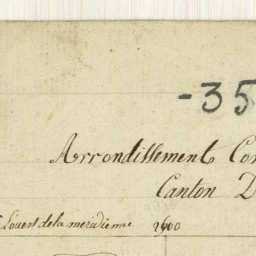 -35
Arrondissement Com
Canton D
L'ouest de la méridienne 2600